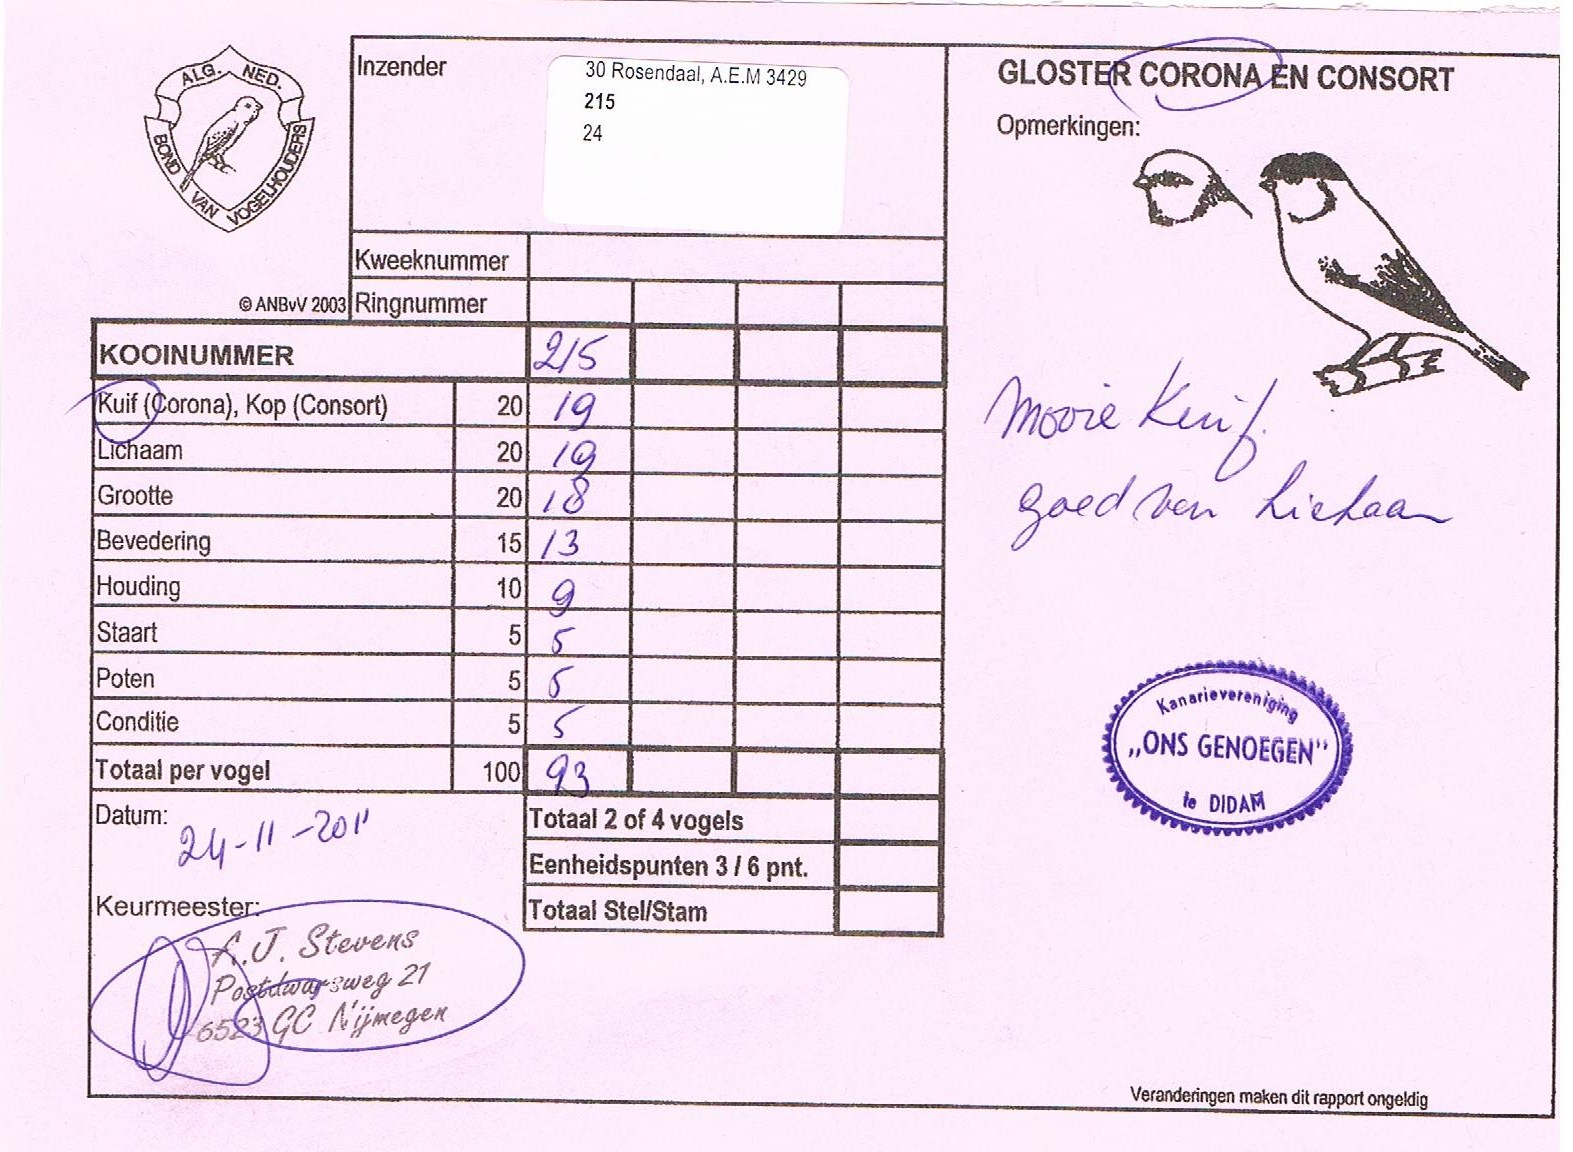 ALG. NED.
BOND VAN VOGELHOUDERS
© ANBvV 2003
Inzender
30 Rosendaal, A.E.M 3429
215
24
Kweeknummer
Ringnummer
KOOINUMMER 215
Kuif (Corona), Kop (Consort) 20 19
Lichaam 20 19
Grootte 20 18
Bevedering 15 13
Houding 10 9
Staart 5 5
Poten 5 5
Conditie 5 5
Totaal per vogel 100 93
Totaal 2 of 4 vogels
Eenheidspunten 3 / 6 pnt.
Totaal Stel/Stam
Datum: 24-11-2011
Keurmeester:
A.J. Stevens
Postdwarsweg 21
6523 GC Nijmegen
GLOSTER CORONA EN CONSORT
Opmerkingen:
Mooie Kuif.
goed van Lichaam
Kanarievereniging
„ONS GENOEGEN"
te DIDAM
Veranderingen maken dit rapport ongeldig